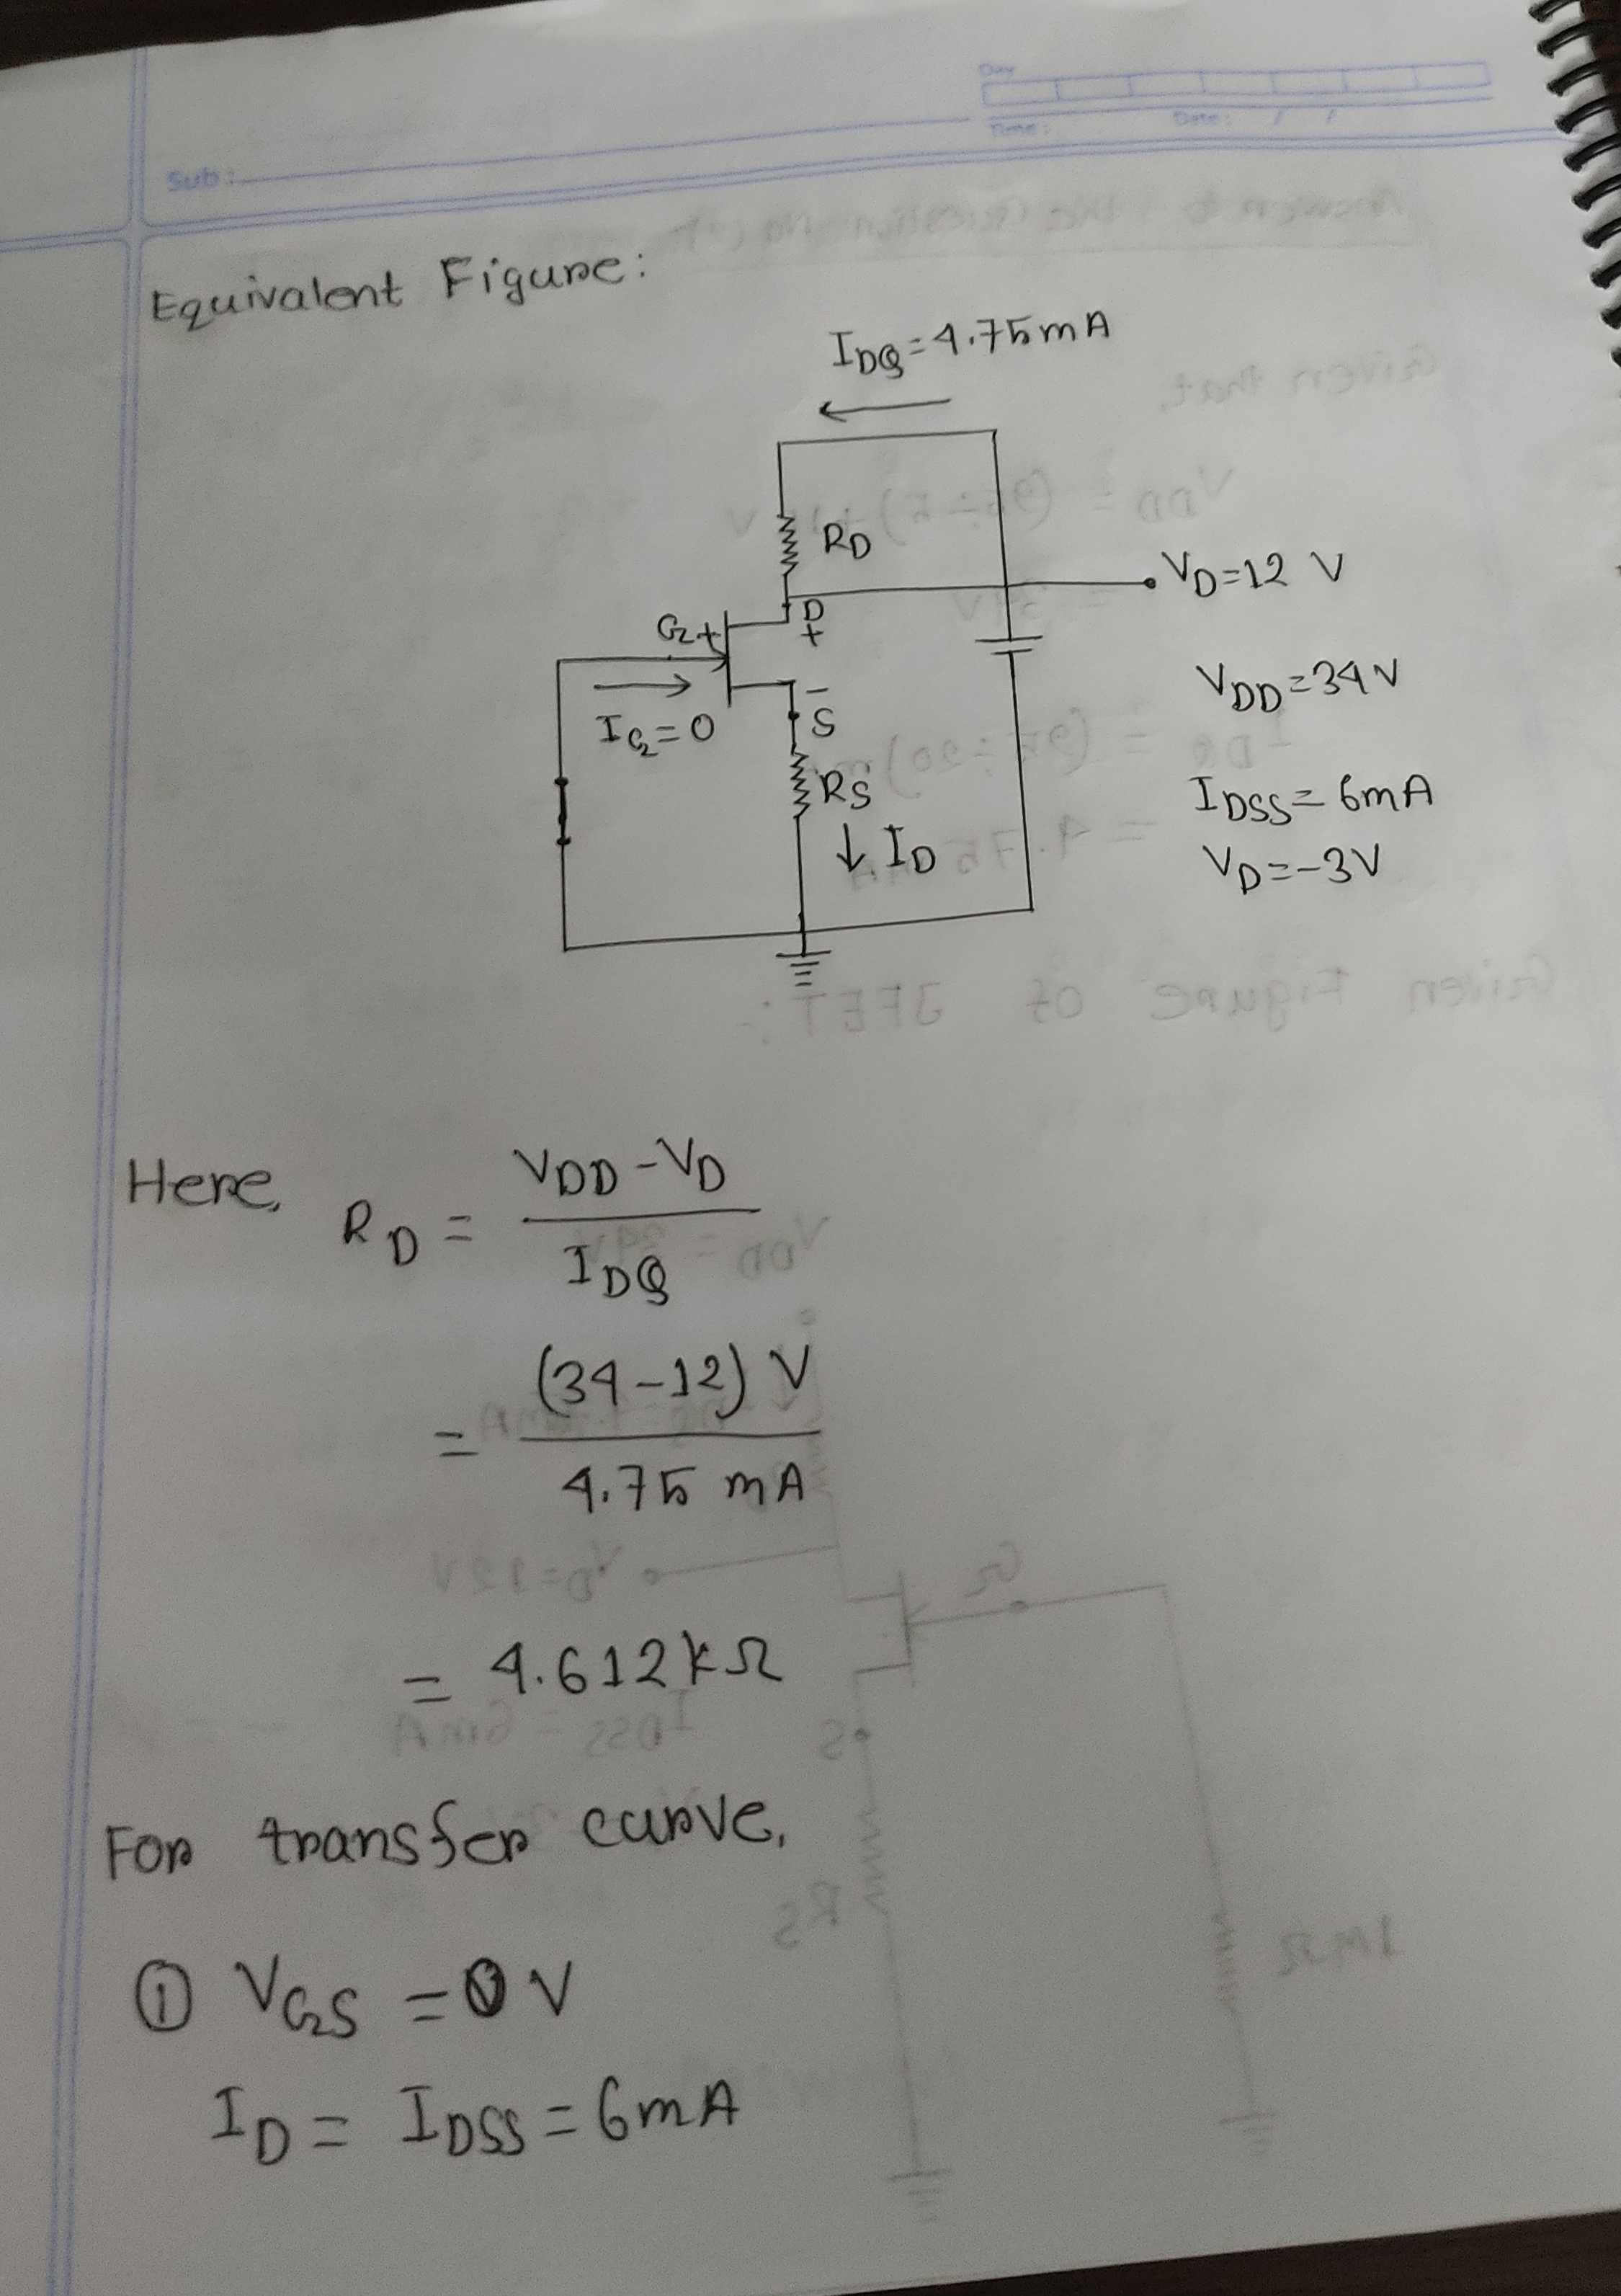 Day
Time: Date: / /
Sub:
Equivalent Figure:
I_DQ = 4.75mA
R_D
V_D=12 V
D
G +
+
V_DD=34V
I_G=0
-
S
R_S
I_DSS=6mA
↓ I_D
V_D=-3V
Here, R_D = (V_DD - V_D) / I_DQ
= (34-12) V / 4.75 mA
= 4.612kΩ
For transfer curve,
① V_GS = 0 V
I_D = I_DSS = 6mA